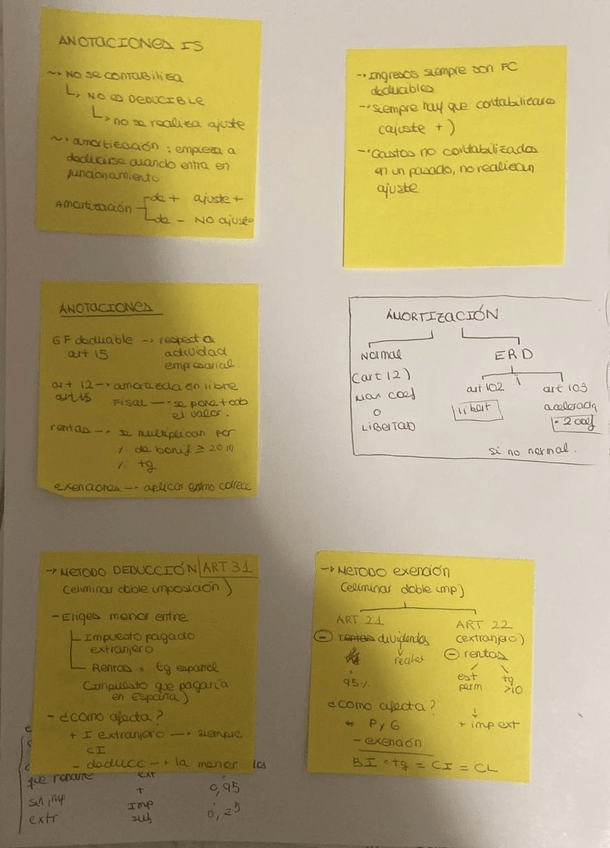 ANOTACIONES IS
~ NO SE CONTABILIZA
↳ NO ES DEDUCIBLE
↳ no se realiza ajuste
~ amortización: empieza a
deducirse cuando entra en
funcionamiento
AMORTIZACIÓN de + ajuste +
de - NO ajuste
→ Ingresos siempre son FC
deducibles
→ Siempre hay que contabilizarlos
(ajuste +)
→ Gastos no contabilizados
en un pasado, no realizan
ajuste
ANOTACIONES
GF deducible → respecto a
art 15 actividad
empresarial.
art 12 → amortizada en libre
art 15 Fiscal → se pone todo
el valor.
rentas → se multiplican por
% de bonif ≥ 20 M
% tg
exenciones → aplicar como correc
AMORTIZACIÓN
Normal ERD
(art 12) art 102 art 103
Max coef libert acelerada
O · 2 coef
LIBERTAD
si no normal.
→ METODO DEDUCCIÓN ART 31
(eliminar doble imposición)
- Eliges menor entre
Impuesto pagado
extranjero
Rentas × tg español
(impuesto que pagaría
en España)
- ¿como afecta?
+ I extranjero → siempre
CI
- deducc → la menor los
que
ext
+ 0,95
imp
extr sub 0,25
→ METODO exención
(eliminar doble imp)
ART 21 ART 22
- dividendos (extranjero)
- rentas
95% est tg
perm >10
¿como afecta?
+ P y G + imp ext
- exención
BI · tg = CI = CL